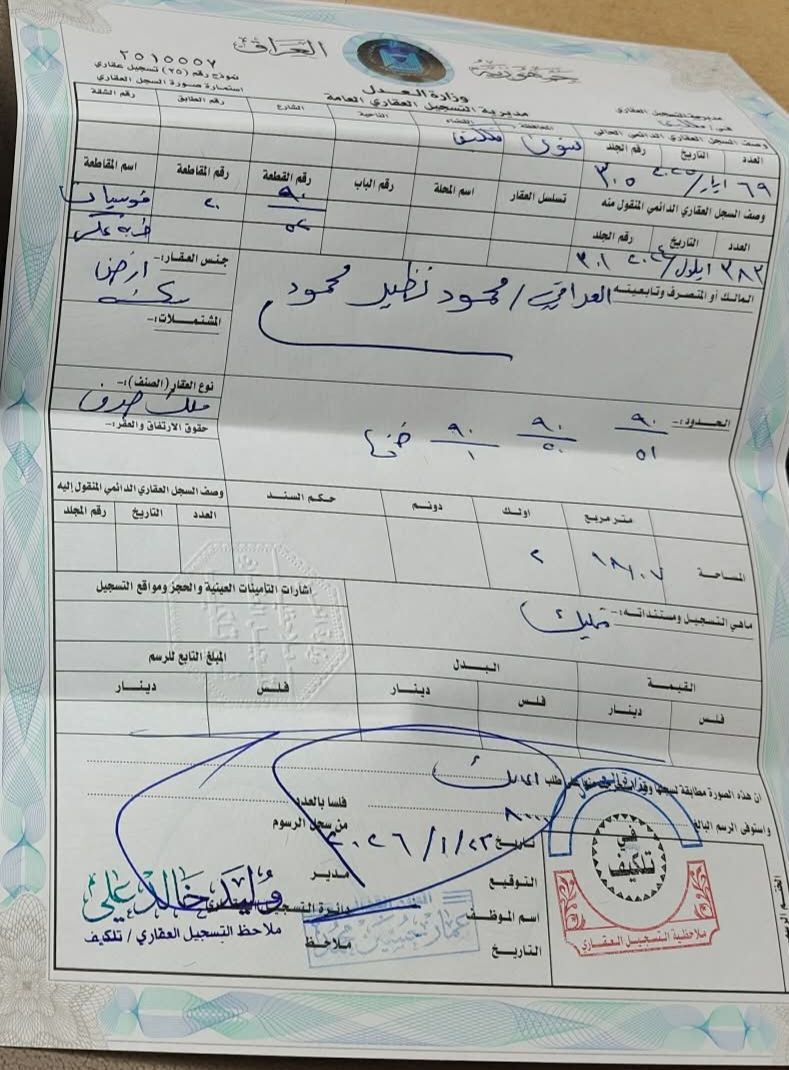 جمهورية العراق
وزارة العدل
مديرية التسجيل العقاري العامة
٢٥١٥٥٥٧
نموذج رقم (٢٥) تسجيل عقاري
استمارة صورة السجل العقاري
مديرية التسجيل العقاري
في / تلكيف
وصف السجل العقاري الدائمي الحالي
المحافظة القضاء الناحية الشارع رقم الطابق رقم الشقة
نينوى تلكيف
العدد التاريخ رقم الجلد
٦٩ ايار/٢٠٢٥ ٣٠٥
تسلسل العقار اسم المحلة رقم الباب رقم القطعة رقم المقاطعة اسم المقاطعة
٩٠/٥٢ ٢٠
وصف السجل العقاري الدائمي المنقول منه
العدد التاريخ رقم الجلد
٣٨٢ ايلول/٢٠٢٤ ٣٠١
المالك أو المتصرف وتابعيته
العراقي / محمود نظير محمود
جنس العقار:- ارض
المشتملات:-
نوع العقار (الصنف):-
ملك صرف
حقوق الارتفاق والعقر:-
الحدود:-
٩٠/٥١ ٩٠/٥٠ ٩٠/١
متر مربع اولك دونم حكم السند
وصف السجل العقاري الدائمي المنقول إليه
العدد التاريخ رقم المجلد
المساحة
٢
أشارات التأمينات العينية والحجز ومواقع التسجيل
ماهي التسجيل ومستنداته:- تمليك
القيمة البدل المبلغ التابع للرسم
فلس دينار فلس دينار فلس دينار
ان هذه الصورة مطابقة لسجلها
على طلب المالك
واستوفى الرسم البالغ ٨٠٠٠ فلسا بالعدد
تاريخ ٢٠٢٦/١/٢٣ من سجل الرسوم
التوقيع
مدير
اسم الموظف
دائرة التسجيل العقاري
التاريخ
ملاحظ
وليد خالد علي
ملاحظ التسجيل العقاري / تلكيف
في
تلكيف
ملاحظية التسجيل العقاري